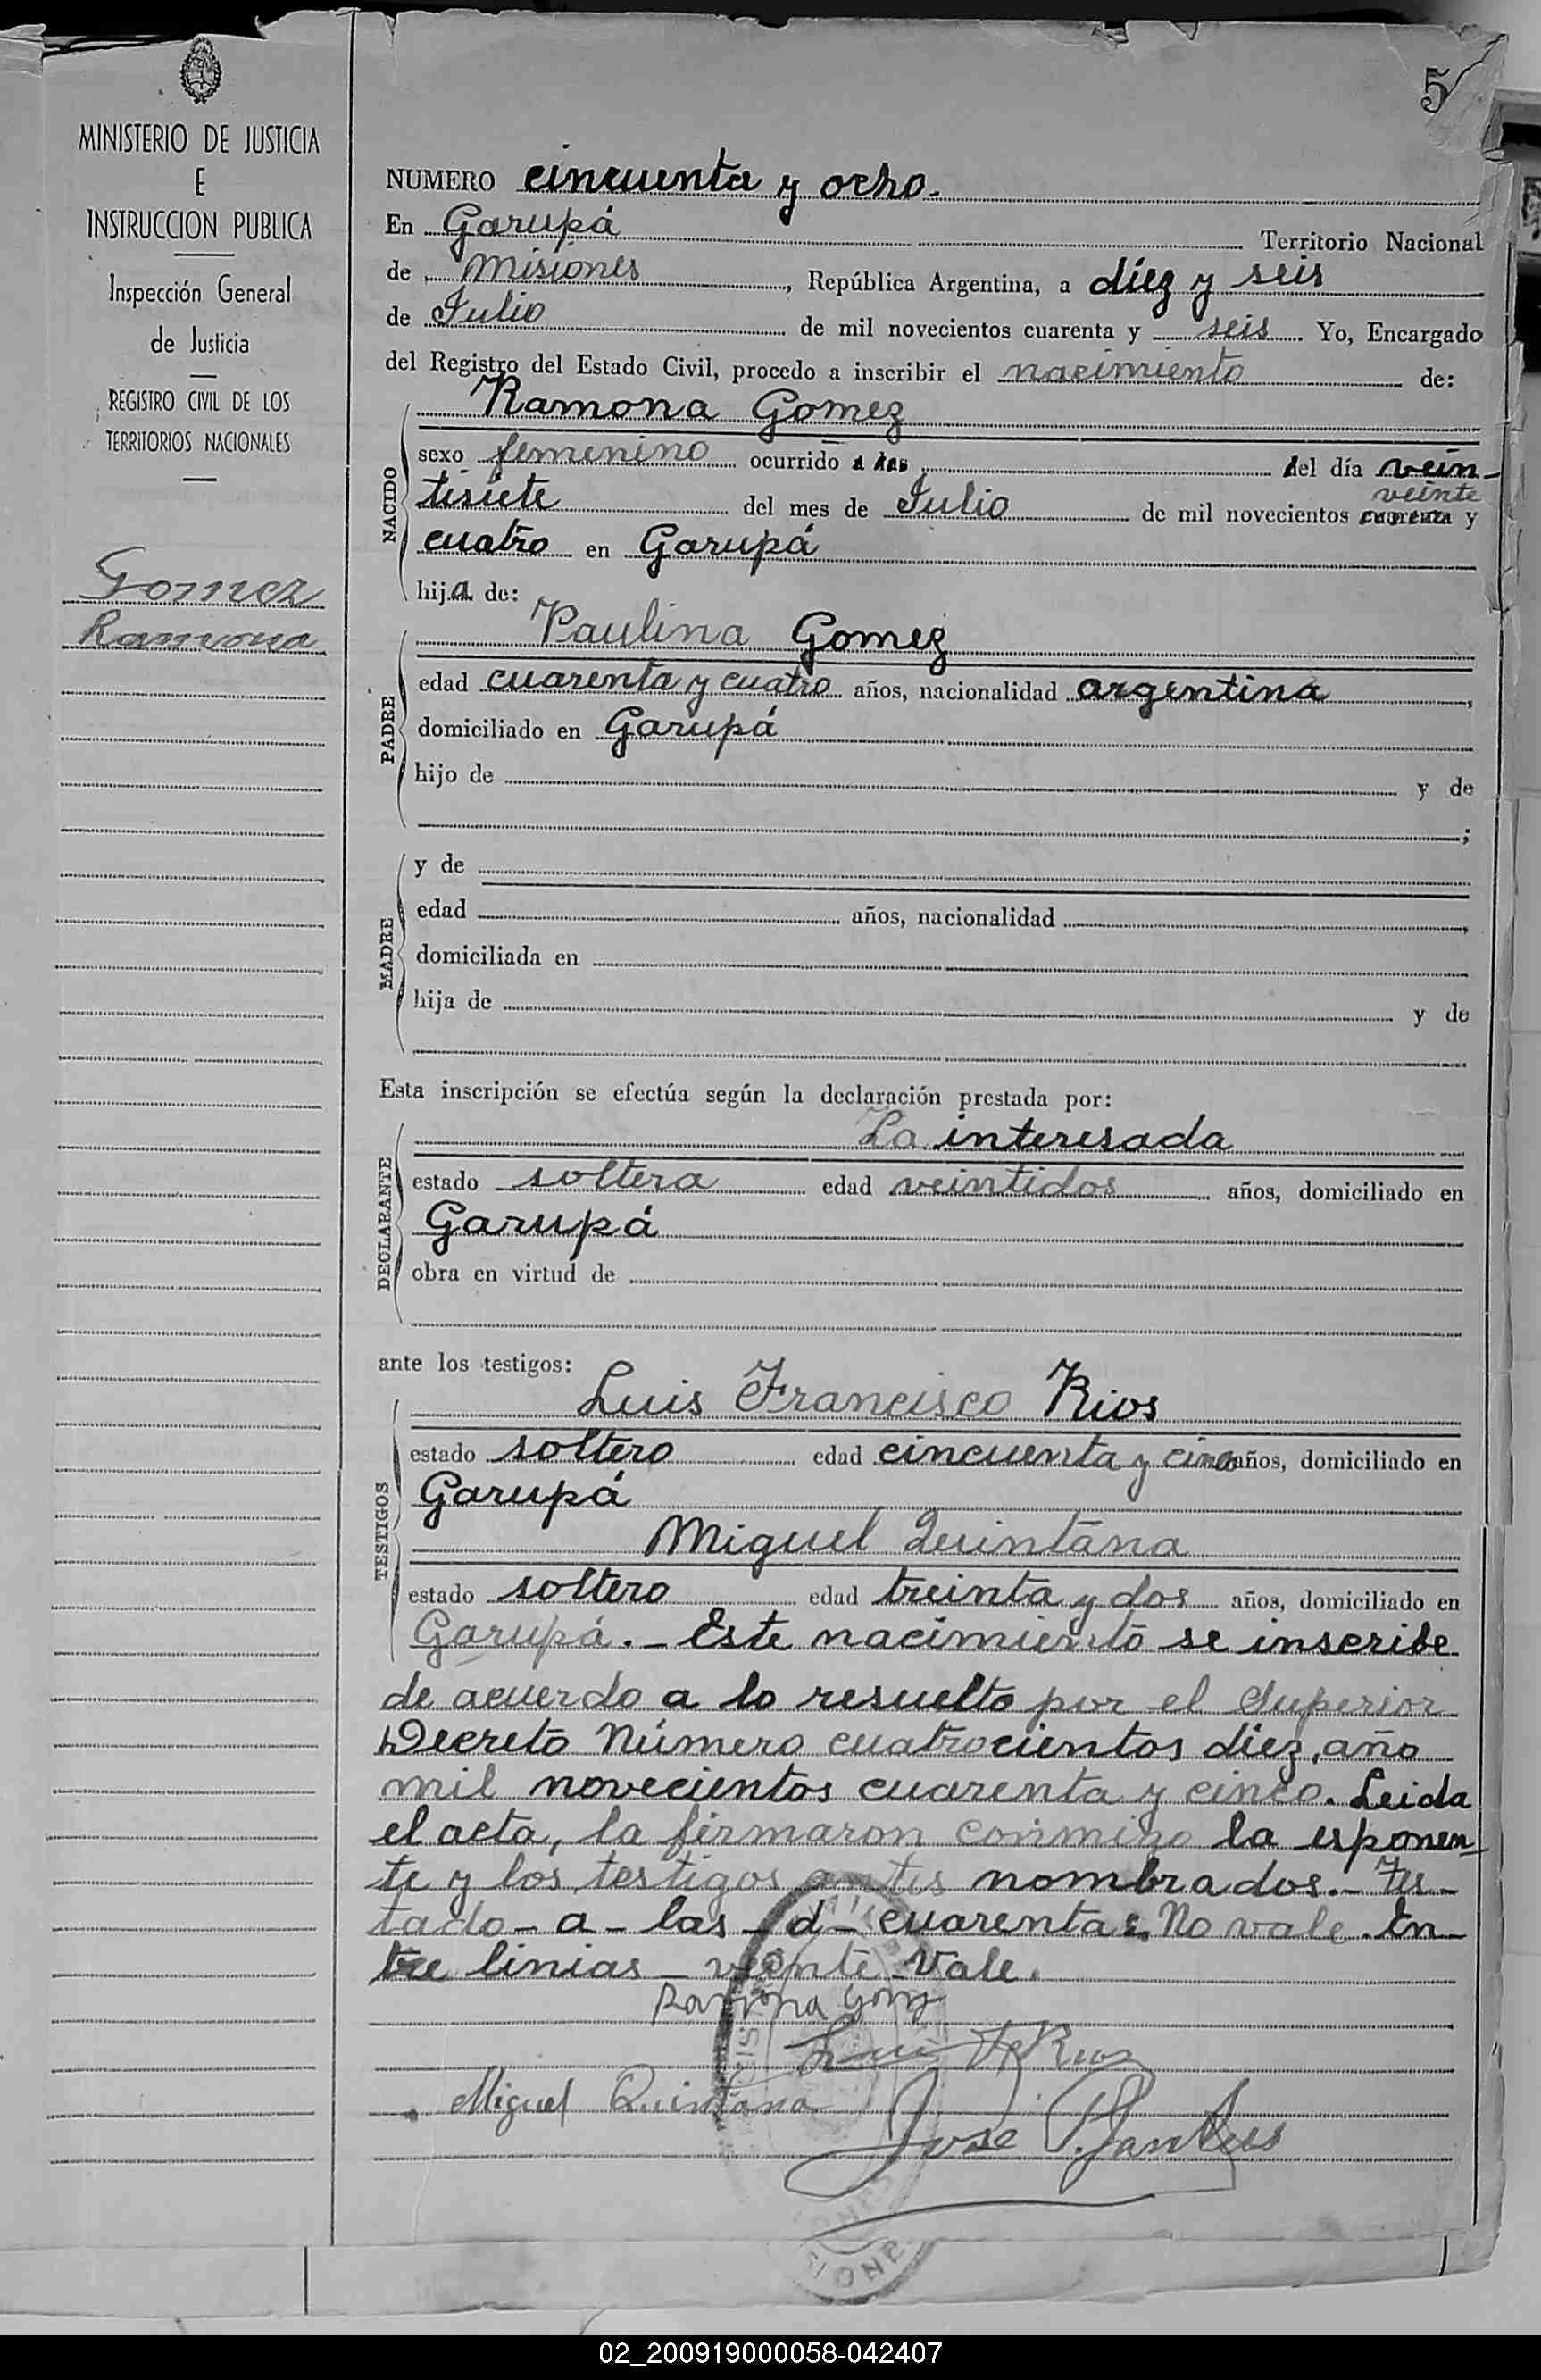 5
MINISTERIO DE JUSTICIA
E
INSTRUCCION PUBLICA
Inspección General
de Justicia
REGISTRO CIVIL DE LOS
TERRITORIOS NACIONALES
Gomez
Ramona
NUMERO cincuenta y ocho.
En Garupá Territorio Nacional
de Misiones, República Argentina, a diez y seis
de Julio de mil novecientos cuarenta y seis Yo, Encargado
del Registro del Estado Civil, procedo a inscribir el nacimiento de:
NACIDO
Ramona Gomez
sexo femenino ocurrido a las del día vein-
veinte
tisiete del mes de Julio de mil novecientos cuarenta y
cuatro en Garupá
hija de:
PADRE
Paulina Gomez
edad cuarenta y cuatro años, nacionalidad argentina,
domiciliado en Garupá
hijo de y de
;
MADRE
y de
edad años, nacionalidad ,
domiciliada en
hija de y de
Esta inscripción se efectúa según la declaración prestada por:
DECLARANTE
La interesada
estado soltera edad veintidos años, domiciliado en
Garupá
obra en virtud de
ante los testigos:
TESTIGOS
Luis Francisco Rios
estado soltero edad cincuenta y cinco años, domiciliado en
Garupá
Miguel Quintana
estado soltero edad treinta y dos años, domiciliado en
Garupá. - Este nacimiento se inscribe
de acuerdo a lo resuelto por el Superior
Decreto Número cuatrocientos diez, año
mil novecientos cuarenta y cinco. Leida
el acta, la firmaron conmigo la esponen-
te y los testigos antes nombrados. - Tes-
tado - a - las - d - cuarenta: No vale. En-
tre linias - veinte - Vale.
Ramona Gomz
Luis F Rios
Miguel Quintana
Jose
02_200919000058-042407